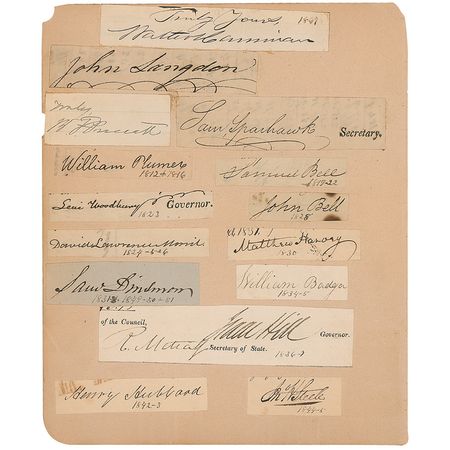 Truly Yours, 1867
Walter Harriman
John Langdon
Truly
Sam Sparhawk
Secretary.
William Plumer
1812 + 1816
Samuel Bell
1819-22
Levi Woodbury Governor.
1823
John Bell
1828
David Lawrence Morril
1824-5-26
Matthew Harvey
1830
Saml Dinsmoor
William Badger
1834-5
of the Council,
Isaac Hill Governor.
R. Metcalf
Secretary of State. 1836-
Henry Hubbard
1842-3
Jno. H. Steele
1844-5